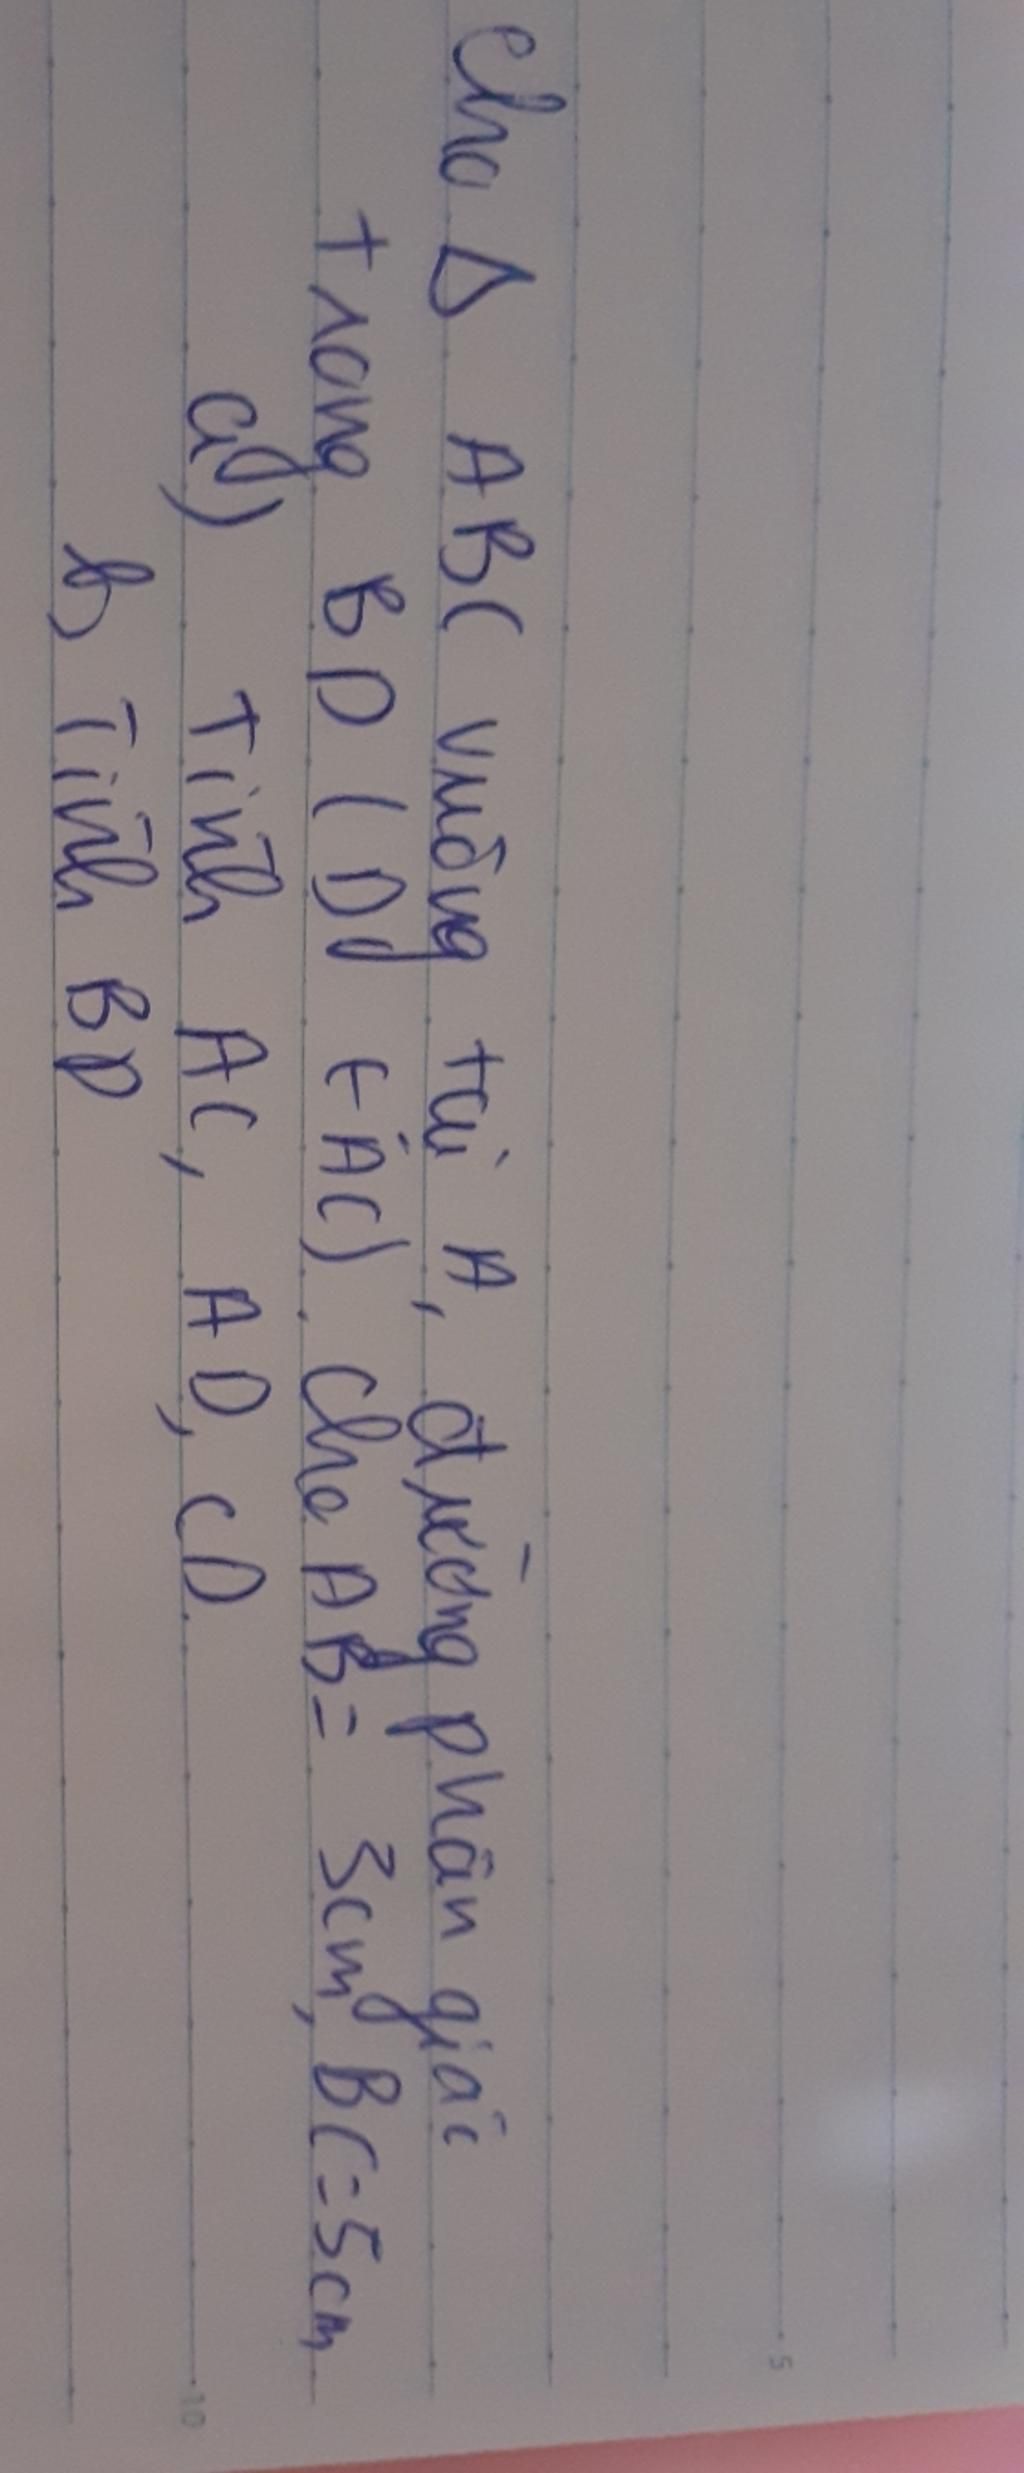 Cho Δ ABC vuông tại A, đường phân giác
trong BD (D ∈ AC). Cho AB = 3cm, BC = 5cm
a) Tính AC, AD, CD.
b) Tính BD
5
10